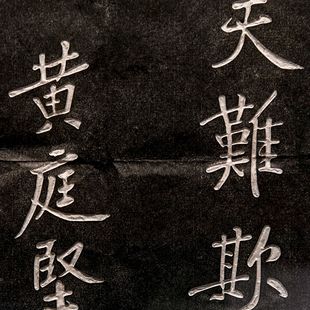 天難欺
黄庭堅